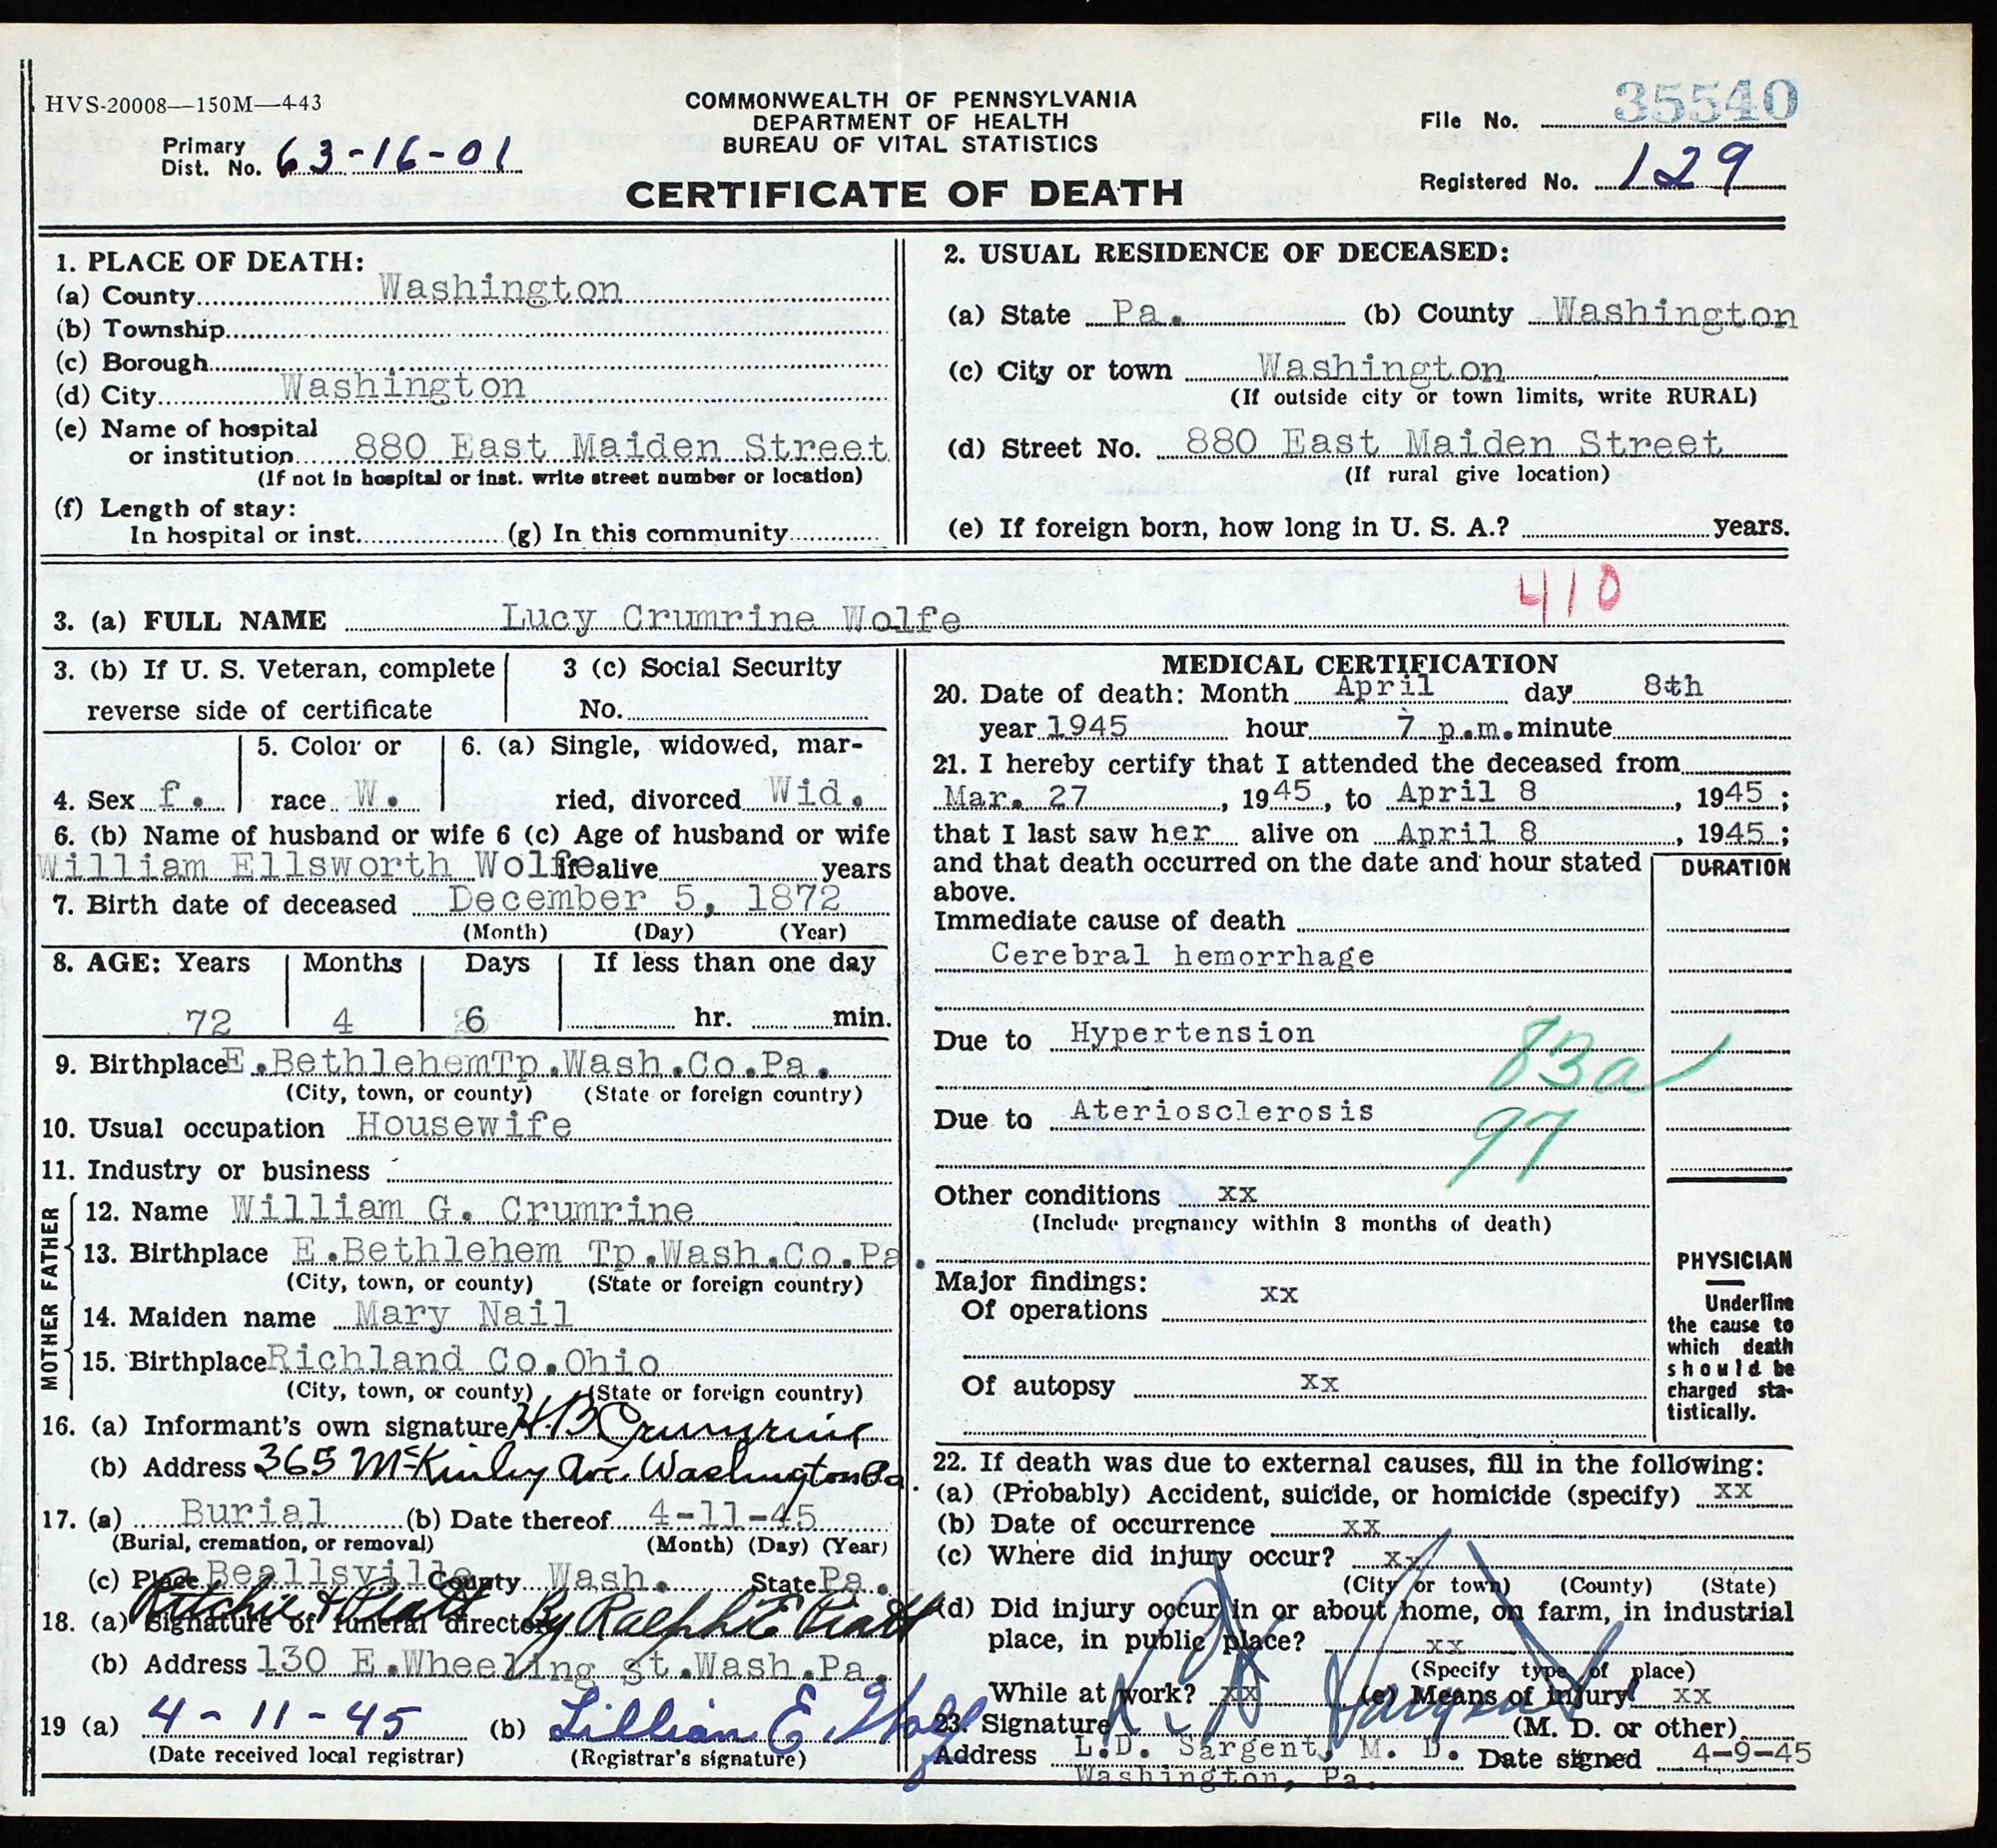 HVS-20008—150M—4-43
COMMONWEALTH OF PENNSYLVANIA
DEPARTMENT OF HEALTH
BUREAU OF VITAL STATISTICS
CERTIFICATE OF DEATH
Primary Dist. No. 63-16-01
File No. 35540
Registered No. 129
1. PLACE OF DEATH:
(a) County Washington
(b) Township
(c) Borough
(d) City Washington
(e) Name of hospital
or institution 880 East Maiden Street
(If not in hospital or inst. write street number or location)
(f) Length of stay:
In hospital or inst. (g) In this community
2. USUAL RESIDENCE OF DECEASED:
(a) State Pa. (b) County Washington
(c) City or town Washington
(If outside city or town limits, write RURAL)
(d) Street No. 880 East Maiden Street
(If rural give location)
(e) If foreign born, how long in U. S. A.? years.
410
3. (a) FULL NAME Lucy Crumrine Wolfe
3. (b) If U. S. Veteran, complete
reverse side of certificate
3 (c) Social Security
No.
4. Sex f.
5. Color or
race W.
6. (a) Single, widowed, mar-
ried, divorced Wid.
6. (b) Name of husband or wife 6 (c) Age of husband or wife
William Ellsworth Wolfe if alive years
7. Birth date of deceased December 5, 1872
(Month) (Day) (Year)
8. AGE: Years Months Days If less than one day
72 4 6 hr. min.
9. Birthplace E.BethlehemTp.Wash.Co.Pa.
(City, town, or county) (State or foreign country)
10. Usual occupation Housewife
11. Industry or business
FATHER
12. Name William G. Crumrine
13. Birthplace E.Bethlehem Tp.Wash.Co.Pa.
(City, town, or county) (State or foreign country)
MOTHER
14. Maiden name Mary Nail
15. Birthplace Richland Co.Ohio
(City, town, or county) (State or foreign country)
16. (a) Informant's own signature H.B Crumrine
(b) Address 365 McKinley Ave. Washington Pa.
17. (a) Burial (b) Date thereof 4-11-45
(Burial, cremation, or removal) (Month) (Day) (Year)
(c) Place Beallsville County Wash. State Pa.
Ritchie & Piatt By Ralph E Piatt
18. (a) Signature of funeral director
(b) Address 130 E.Wheeling st.Wash.Pa.
19 (a) 4-11-45 (b) Lillian E.
(Date received local registrar) (Registrar's signature)
MEDICAL CERTIFICATION
20. Date of death: Month April day 8th
year 1945 hour 7 p.m. minute
21. I hereby certify that I attended the deceased from
Mar. 27, 1945, to April 8, 1945;
that I last saw her alive on April 8, 1945;
and that death occurred on the date and hour stated
above.
DURATION
Immediate cause of death
Cerebral hemorrhage
Due to Hypertension
83a
Due to Ateriosclerosis
97
Other conditions xx
(Include pregnancy within 3 months of death)
Major findings:
Of operations xx
Of autopsy xx
PHYSICIAN
Underline
the cause to
which death
should be
charged sta-
tistically.
22. If death was due to external causes, fill in the following:
(a) (Probably) Accident, suicide, or homicide (specify) xx
(b) Date of occurrence xx
(c) Where did injury occur? xx
(City or town) (County) (State)
(d) Did injury occur in or about home, on farm, in industrial
place, in public place? xx
(Specify type of place)
While at work? xx (e) Means of injury xx
23. Signature (M. D. or other)
Address L.D. Sargent, M. D. Date signed 4-9-45
Washington, Pa.